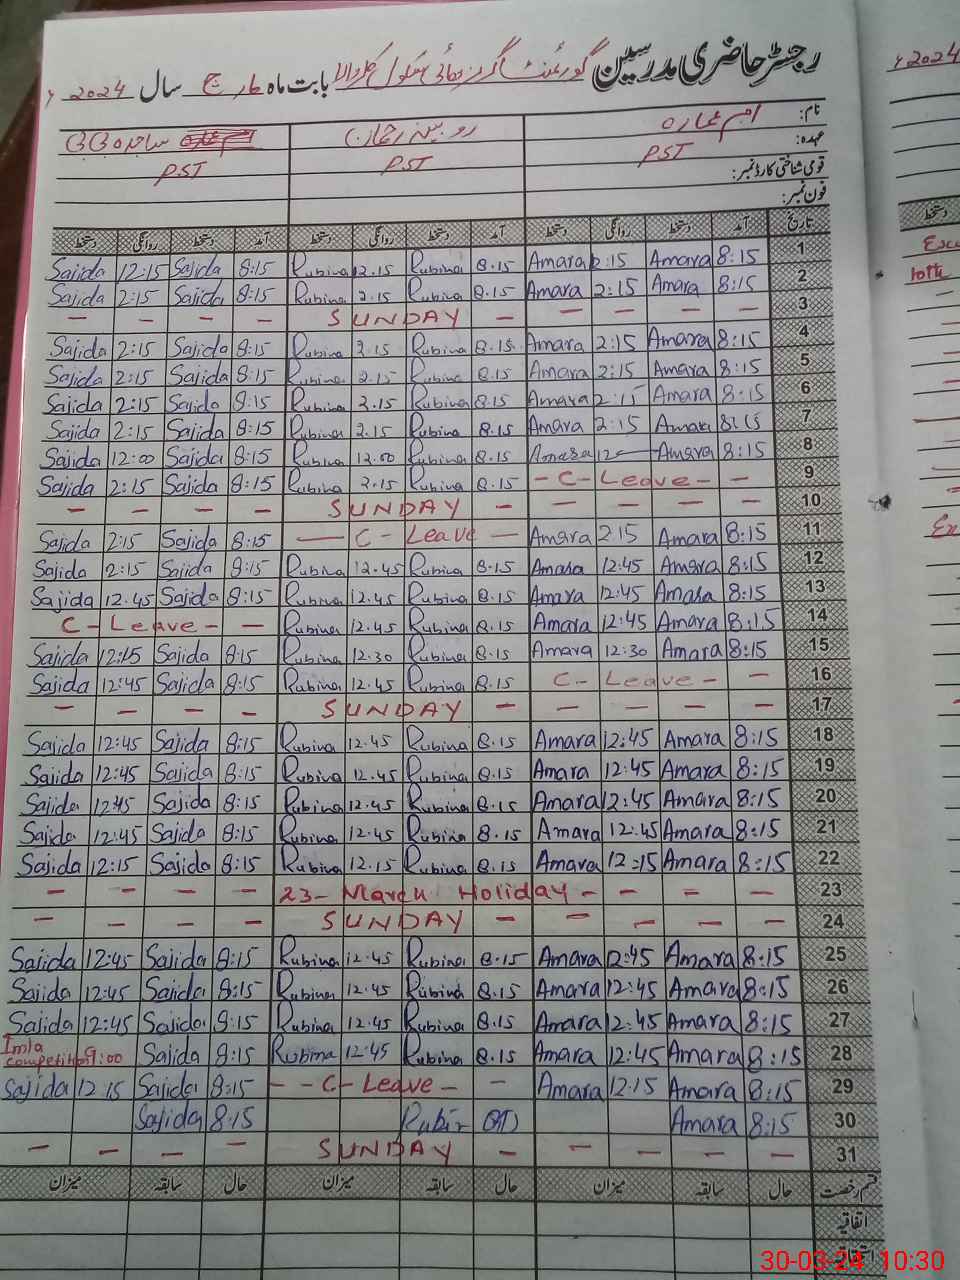 رجسٹر حاضری مدرسین گورنمنٹ گرلز سکول بابت ماہ مارچ سال 2024ء
نام: ام عمارہ روبینہ رحمان ساجدہ بی بی
عہدہ: PST PST PST
قومی شناختی کارڈ نمبر:
فون نمبر:
تاریخ آمد دستخط روانگی دستخط آمد دستخط روانگی دستخط آمد دستخط روانگی دستخط
Sajida 12:15 Sajida 8:15 Rubina 12.15 Rubina 8.15 Amara 2:15 Amara 8:15 1
Sajida 2:15 Sajida 8:15 Rubina 2.15 Rubina 8.15 Amara 2:15 Amara 8:15 2
- - - - SUNDAY - - - - - 3
Sajida 2:15 Sajida 8:15 Rubina 2.15 Rubina 8.15 Amara 2:15 Amara 8:15 4
Sajida 2:15 Sajida 8:15 Rubina 2.15 Rubina 8.15 Amara 2:15 Amara 8:15 5
Sajida 2:15 Sajida 8:15 Rubina 2.15 Rubina 8.15 Amara 2:15 Amara 8:15 6
Sajida 2:15 Sajida 8:15 Rubina 2.15 Rubina 8.15 Amara 2:15 Amara 8:15 7
Sajida 12:00 Sajida 8:15 Rubina 12.00 Rubina 8.15 Amara 12 Amara 8:15 8
Sajida 2:15 Sajida 8:15 Rubina 2.15 Rubina 8.15 - C - Leave - - 9
- - - - SUNDAY - - - - - 10
Sajida 2:15 Sajida 8:15 - C - Leave - Amara 2.15 Amara 8:15 11
Sajida 2:15 Sajida 8:15 Rubina 12.45 Rubina 8.15 Amara 12:45 Amara 8:15 12
Sajida 12.45 Sajida 8:15 Rubina 12.45 Rubina 8.15 Amara 12:45 Amara 8:15 13
C - Leave - - Rubina 12.45 Rubina 8.15 Amara 12:45 Amara 8:15 14
Sajida 12:15 Sajida 8:15 Rubina 12.30 Rubina 8.15 Amara 12:30 Amara 8:15 15
Sajida 12:45 Sajida 8:15 Rubina 12.45 Rubina 8.15 C - Leave - - 16
- - - - SUNDAY - - - - - 17
Sajida 12:45 Sajida 8:15 Rubina 12.45 Rubina 8.15 Amara 12:45 Amara 8:15 18
Sajida 12:45 Sajida 8:15 Rubina 12.45 Rubina 8.15 Amara 12:45 Amara 8:15 19
Sajida 12:45 Sajida 8:15 Rubina 12.45 Rubina 8.15 Amara 12:45 Amara 8:15 20
Sajida 12:45 Sajida 8:15 Rubina 12.45 Rubina 8.15 Amara 12:45 Amara 8:15 21
Sajida 12:15 Sajida 8:15 Rubina 12.15 Rubina 8.15 Amara 12:15 Amara 8:15 22
- - - - 23- March Holiday - - - - 23
- - - - SUNDAY - - - - - 24
Sajida 12:45 Sajida 8:15 Rubina 12.45 Rubina 8.15 Amara 12:45 Amara 8:15 25
Sajida 12:45 Sajida 8:15 Rubina 12.45 Rubina 8.15 Amara 12:45 Amara 8:15 26
Sajida 12:45 Sajida 8:15 Rubina 12.45 Rubina 8.15 Amara 12:45 Amara 8:15 27
Imla competition 9:00 Sajida 8:15 Rubina 12:45 Rubina 8.15 Amara 12:45 Amara 8:15 28
Sajida 12:15 Sajida 8:15 - - C - Leave - - Amara 12:15 Amara 8:15 29
Sajida 8:15 Amara 8:15 30
- - - - SUNDAY - - - - - 31
قسم رخصت حال سابقہ میزان حال سابقہ میزان حال سابقہ میزان
اتفاقیہ
2024ء
دستخط
both
30-03-24 10:30